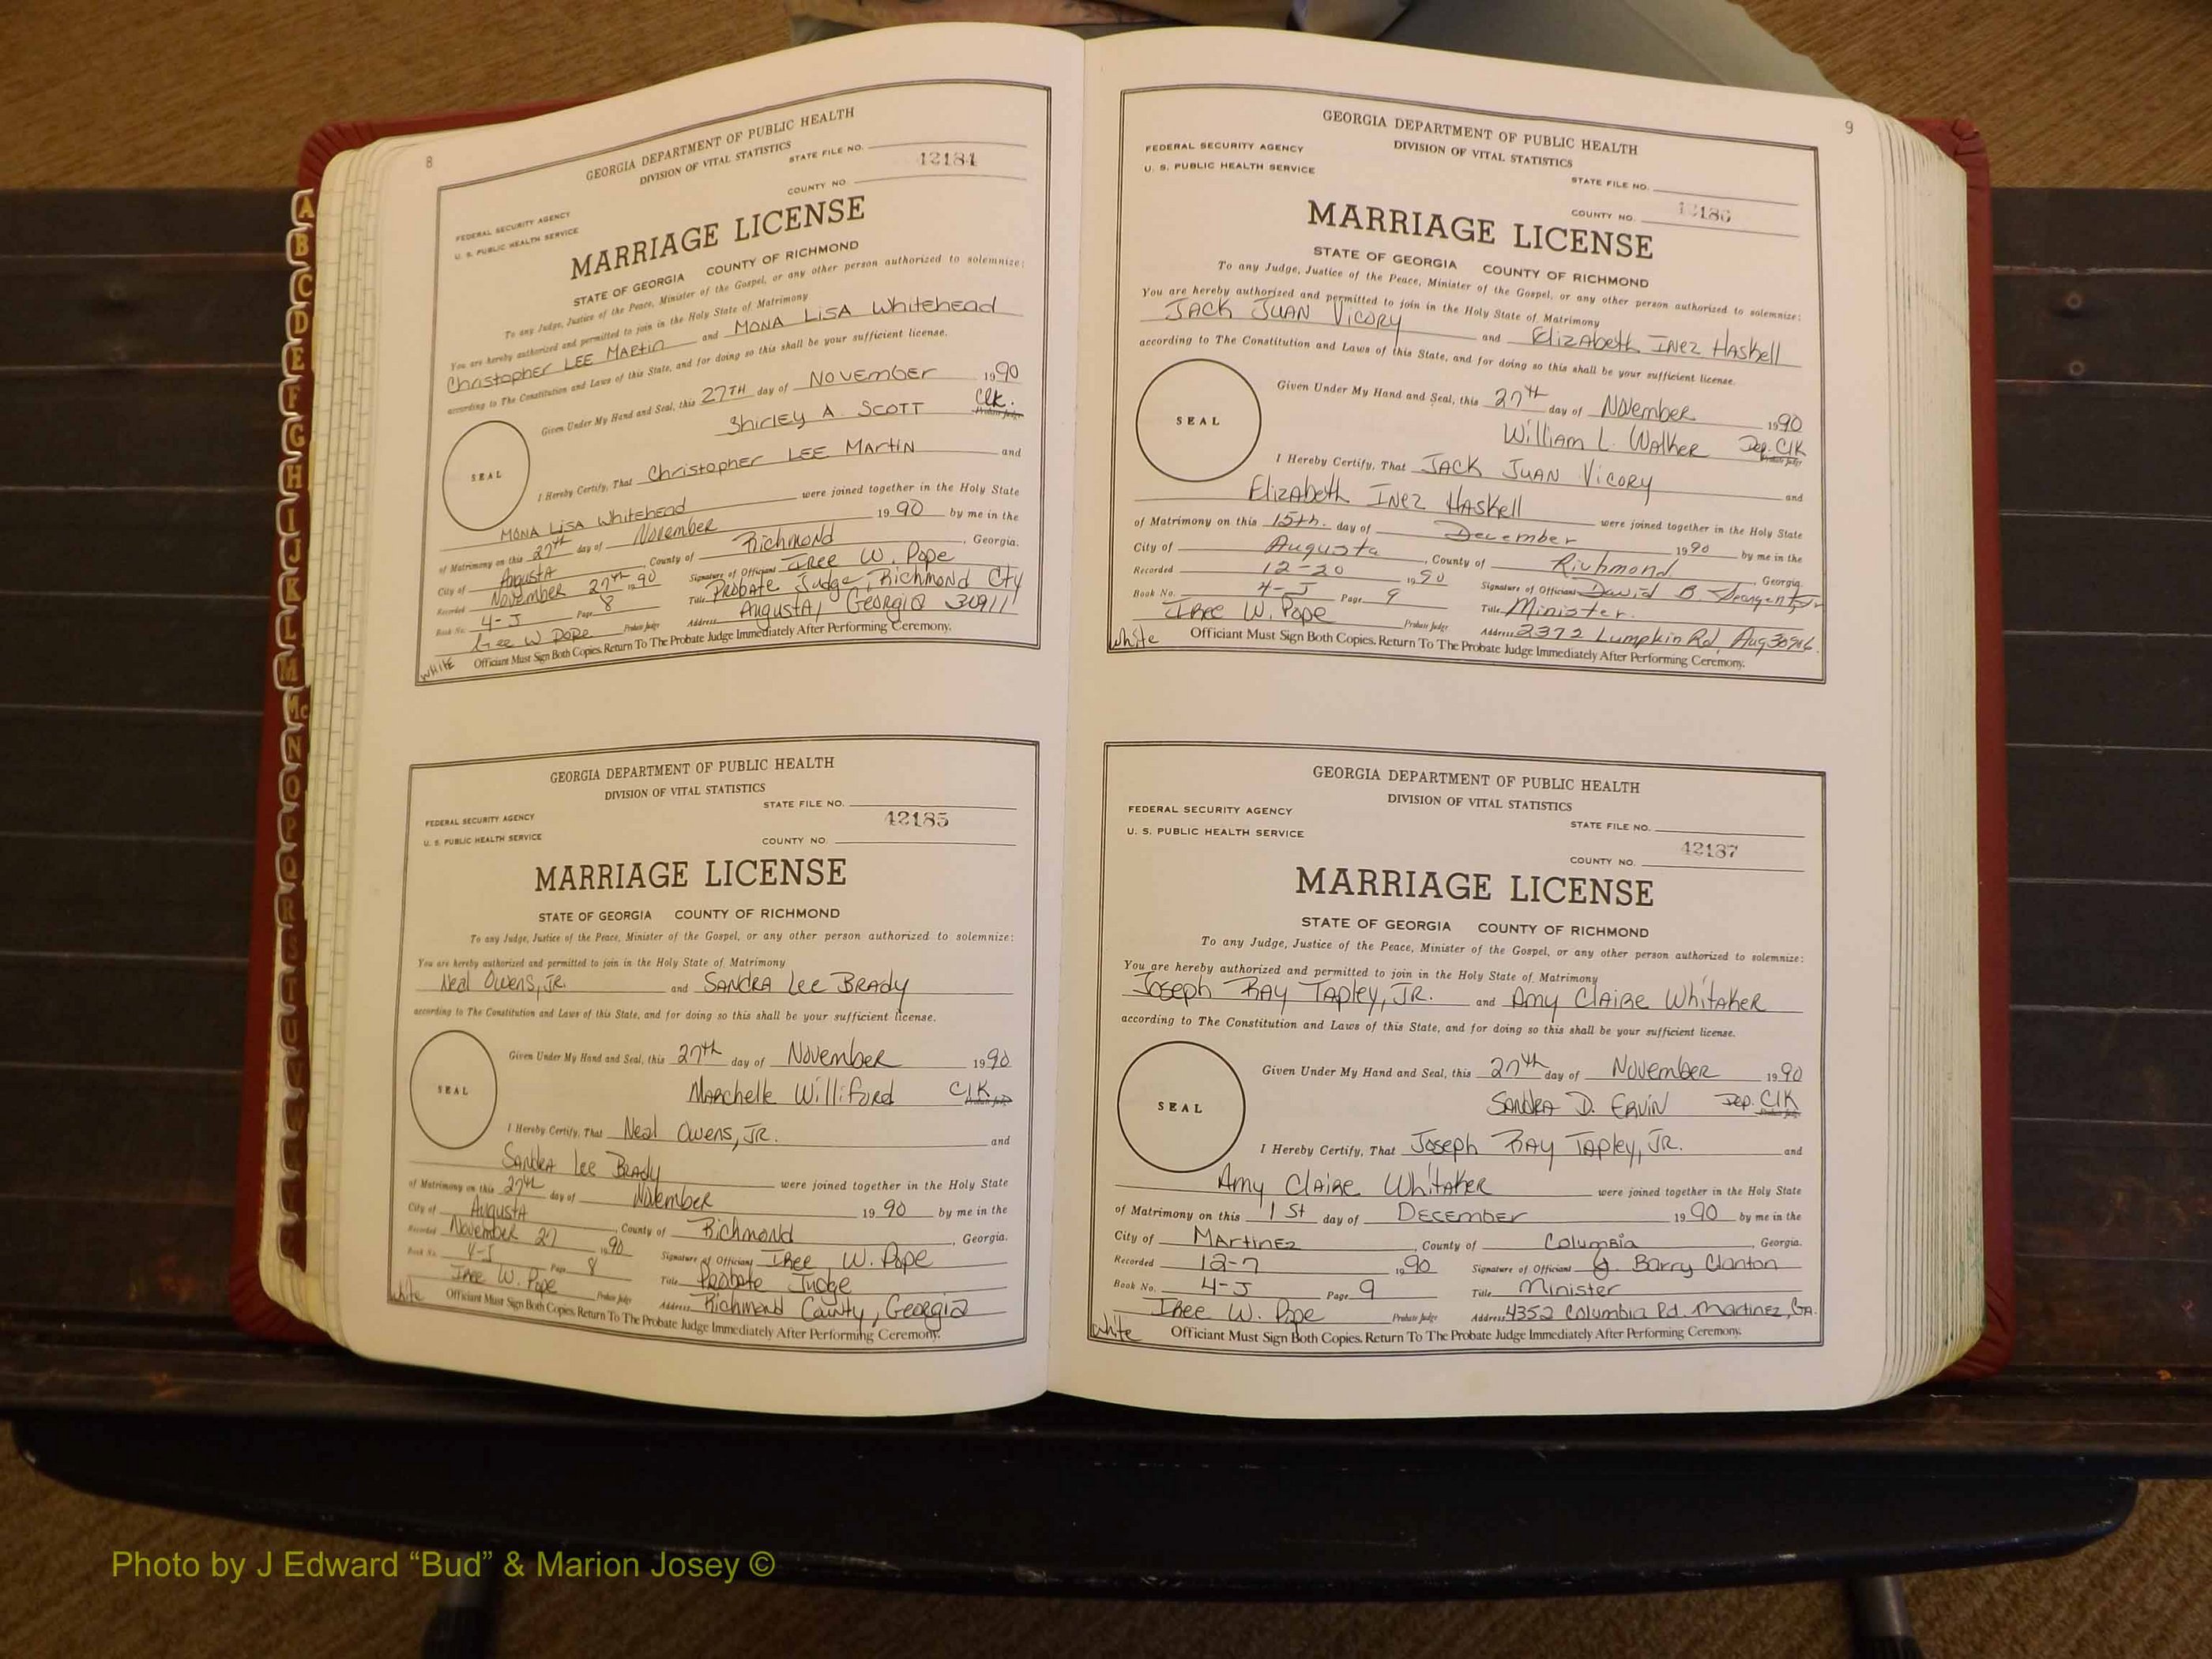 8
GEORGIA DEPARTMENT OF PUBLIC HEALTH
DIVISION OF VITAL STATISTICS
STATE FILE NO.
12184
COUNTY NO.
FEDERAL SECURITY AGENCY
U. S. PUBLIC HEALTH SERVICE
MARRIAGE LICENSE
STATE OF GEORGIA COUNTY OF RICHMOND
To any Judge, Justice of the Peace, Minister of the Gospel, or any other person authorized to solemnize:
You are hereby authorized and permitted to join in the Holy State of Matrimony
Christopher LEE Martin and MONA LiSA Whitehead
according to The Constitution and Laws of this State, and for doing so this shall be your sufficient license.
Given Under My Hand and Seal, this 27TH day of NOVEMBER 1990
SEAL
Shirley A. SCOTT Clk.
Probate Judge
I Hereby Certify, That Christopher LEE Martin and
MONA LiSA Whitehead were joined together in the Holy State
of Matrimony on this 27th day of November 1990 by me in the
City of AugustA, County of Richmond, Georgia.
Recorded November 27th 1990 Signature of Officiant W. Pope
Book No. 4-J Page 8 Title Probate Judge, Richmond Cty
W Pope Probate Judge Address AugustA, Georgia 30911
white Officiant Must Sign Both Copies. Return To The Probate Judge Immediately After Performing Ceremony.
GEORGIA DEPARTMENT OF PUBLIC HEALTH
DIVISION OF VITAL STATISTICS
STATE FILE NO.
FEDERAL SECURITY AGENCY
12185
U. S. PUBLIC HEALTH SERVICE
COUNTY NO.
MARRIAGE LICENSE
STATE OF GEORGIA COUNTY OF RICHMOND
To any Judge, Justice of the Peace, Minister of the Gospel, or any other person authorized to solemnize:
You are hereby authorized and permitted to join in the Holy State of Matrimony
Neal Owens, JR. and SANDRA Lee BRADY
according to The Constitution and Laws of this State, and for doing so this shall be your sufficient license.
Given Under My Hand and Seal, this 27th day of November 1990
SEAL
Marchelle Williford Clk
Probate Judge
I Hereby Certify, That Neal Owens, JR. and
SANDRA Lee BRADY were joined together in the Holy State
of Matrimony on this 27th day of November 1990 by me in the
City of AugustA, County of Richmond, Georgia.
Recorded November 27 1990 Signature of Officiant W. Pope
Book No. 4-J Page 8 Title Probate Judge
W. Pope Probate Judge Address Richmond County, Georgia
white Officiant Must Sign Both Copies. Return To The Probate Judge Immediately After Performing Ceremony.
9
GEORGIA DEPARTMENT OF PUBLIC HEALTH
FEDERAL SECURITY AGENCY
DIVISION OF VITAL STATISTICS
U. S. PUBLIC HEALTH SERVICE
STATE FILE NO.
COUNTY NO. 12186
MARRIAGE LICENSE
STATE OF GEORGIA COUNTY OF RICHMOND
To any Judge, Justice of the Peace, Minister of the Gospel, or any other person authorized to solemnize:
You are hereby authorized and permitted to join in the Holy State of Matrimony
JACK JUAN VICORY and Elizabeth INez Haskell
according to The Constitution and Laws of this State, and for doing so this shall be your sufficient license.
Given Under My Hand and Seal, this 27th day of November 1990
SEAL
William L. Walker Dep. Clk
Probate Judge
I Hereby Certify, That JACK JUAN VICORY and
Elizabeth INez Haskell were joined together in the Holy State
of Matrimony on this 15th. day of December 1990 by me in the
City of Augusta, County of Richmond, Georgia
Recorded 12-20 1990 Signature of Officiant David B.
Book No. 4-J Page 9 Title Minister.
W. Pope Probate Judge Address 2372 Lumpkin Rd, Aug 30906.
white Officiant Must Sign Both Copies. Return To The Probate Judge Immediately After Performing Ceremony.
GEORGIA DEPARTMENT OF PUBLIC HEALTH
DIVISION OF VITAL STATISTICS
FEDERAL SECURITY AGENCY
STATE FILE NO.
U. S. PUBLIC HEALTH SERVICE
12187
COUNTY NO.
MARRIAGE LICENSE
STATE OF GEORGIA COUNTY OF RICHMOND
To any Judge, Justice of the Peace, Minister of the Gospel, or any other person authorized to solemnize:
You are hereby authorized and permitted to join in the Holy State of Matrimony
Joseph RAY TAPley, JR. and Amy Claire Whitaker
according to The Constitution and Laws of this State, and for doing so this shall be your sufficient license.
Given Under My Hand and Seal, this 27th day of November 1990
SEAL
SANDRA D. ERVIN Dep. Clk
Probate Judge
I Hereby Certify, That Joseph RAY TAPley, JR. and
Amy Claire Whitaker were joined together in the Holy State
of Matrimony on this 1st day of DECEMBER 1990 by me in the
City of MARTINEZ, County of Columbia, Georgia.
Recorded 12-7 1990 Signature of Officiant Barry Clanton
Book No. 4-J Page 9 Title Minister
W. Pope Probate Judge Address 4352 Columbia Rd. Martinez, GA.
white Officiant Must Sign Both Copies. Return To The Probate Judge Immediately After Performing Ceremony.
A
B
C
D
E
F
G
H
I
J
K
L
M
Mc
N
O
P
Q
R
S
T
U
V
Photo by J Edward “Bud” & Marion Josey ©